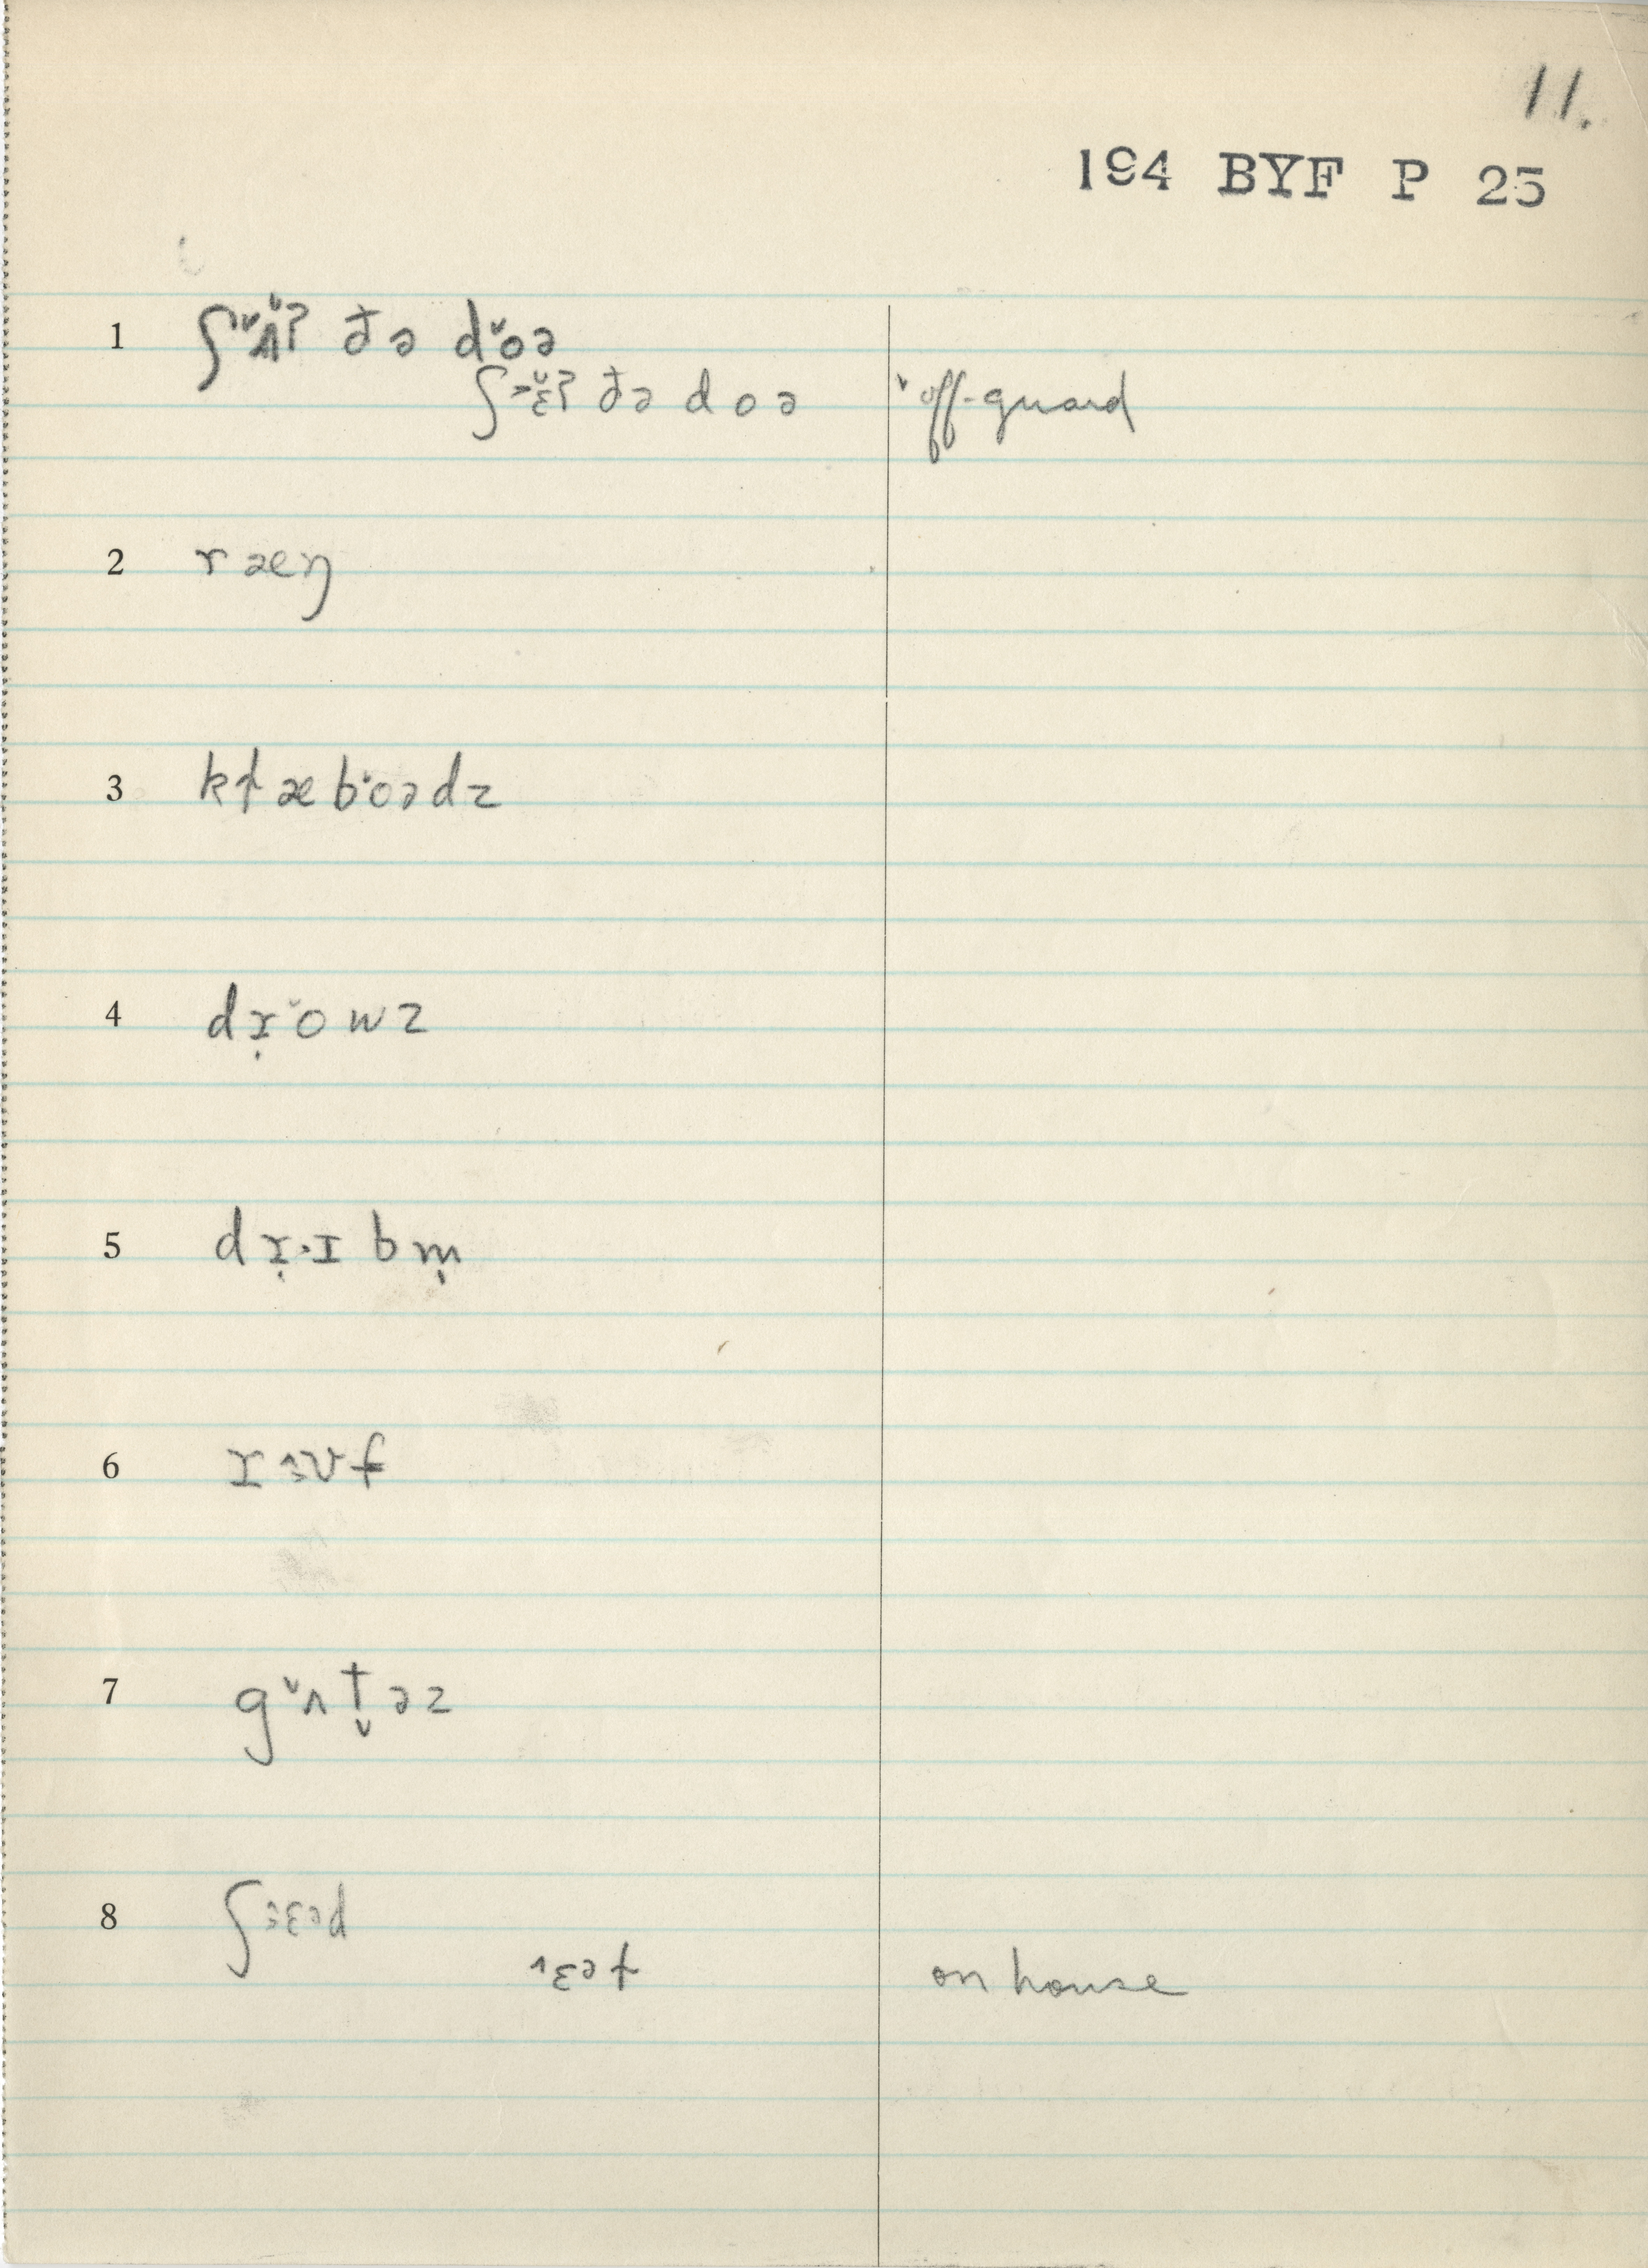 11.
194 BYF P 25
1 ʃˇʌ̆ʔ ðə dˇoə
ʃ˃ɛ̆ʔ ðə doə ˅off-guard
2 ræŋ
3 kɫæb˅oədz
4 dɪ̣˅owz
5 dɪ̣˔ɪbm̩
6 rɜʊf
7 gˇʌt̬əz
8 ʃɛəd
˄ɛət on house